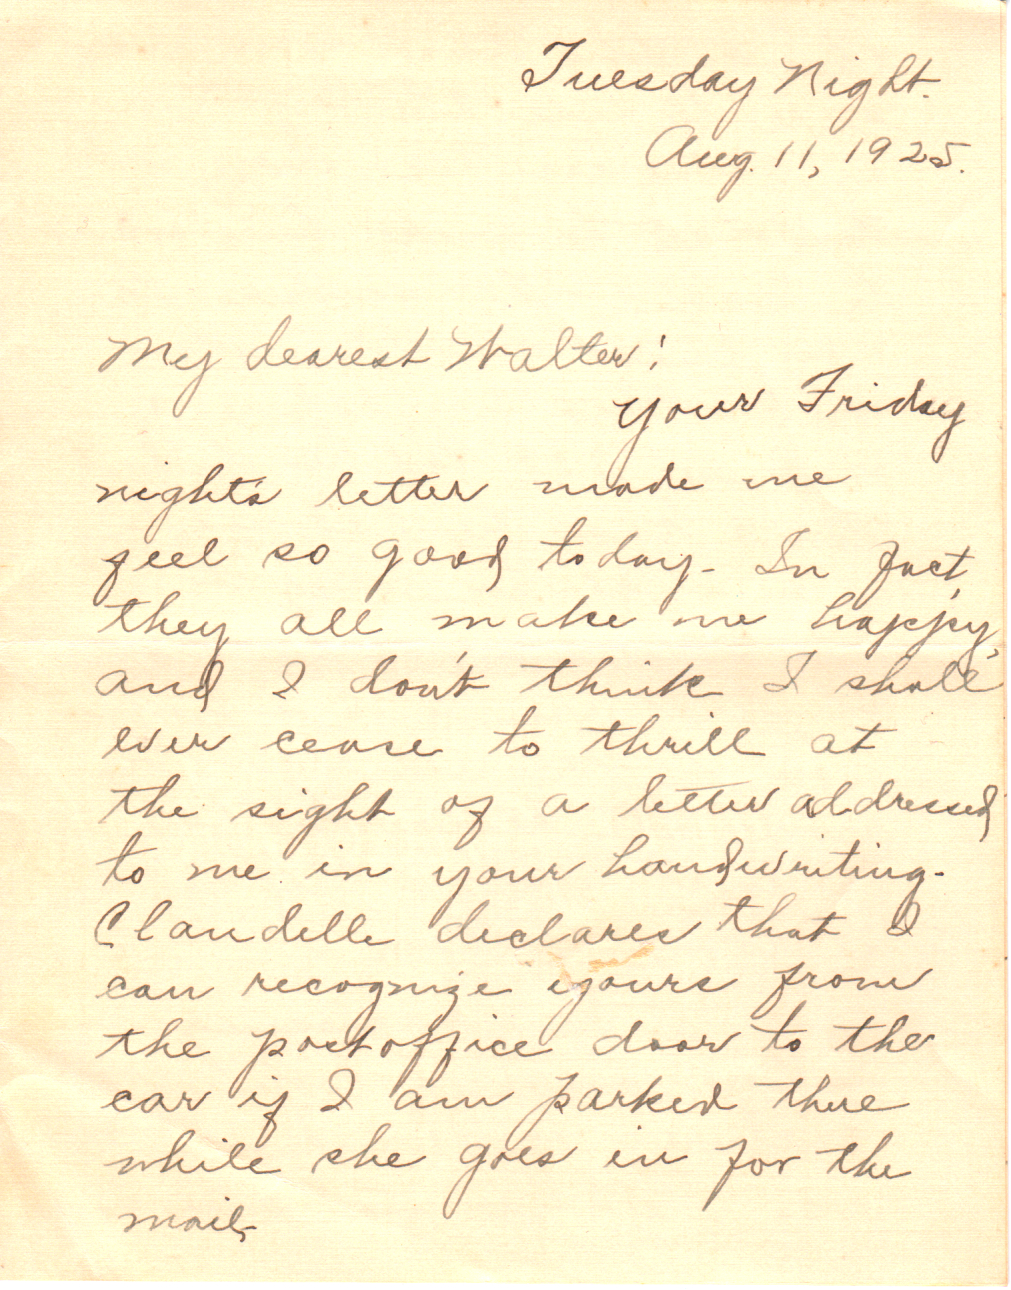 Tuesday Night.
Aug. 11, 1925.
My dearest Walter:
Your Friday
night's letter made me
feel so good today. In fact,
they all make me happy,
and I don't think I shall
ever cease to thrill at
the sight of a letter addressed
to me in your handwriting.
Claudelle declares that I
can recognize yours from
the postoffice door to the
car if I am parked there
while she goes in for the
mail.